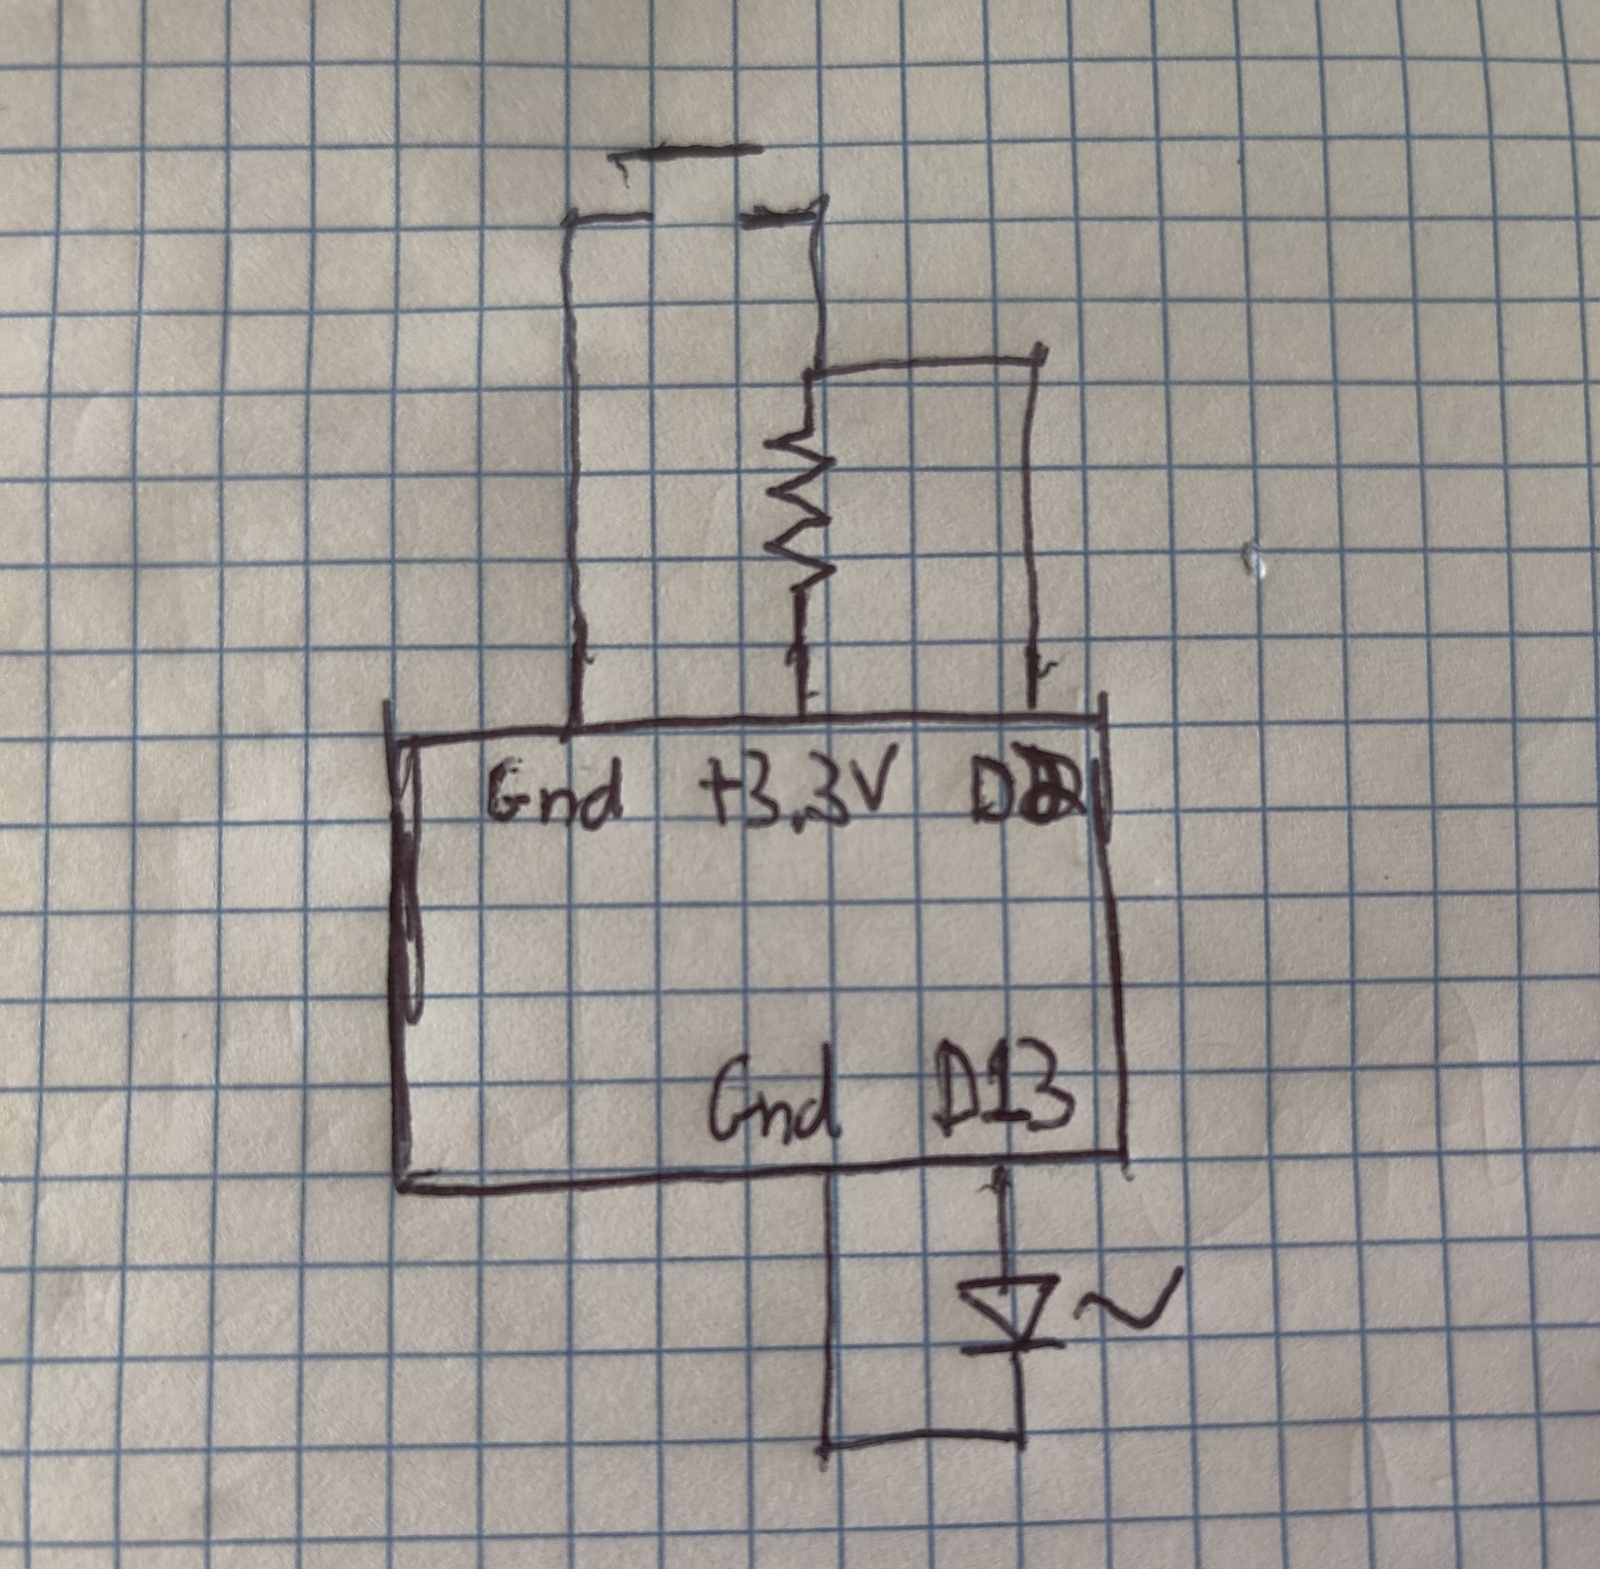 Gnd +3.3V
Gnd D13